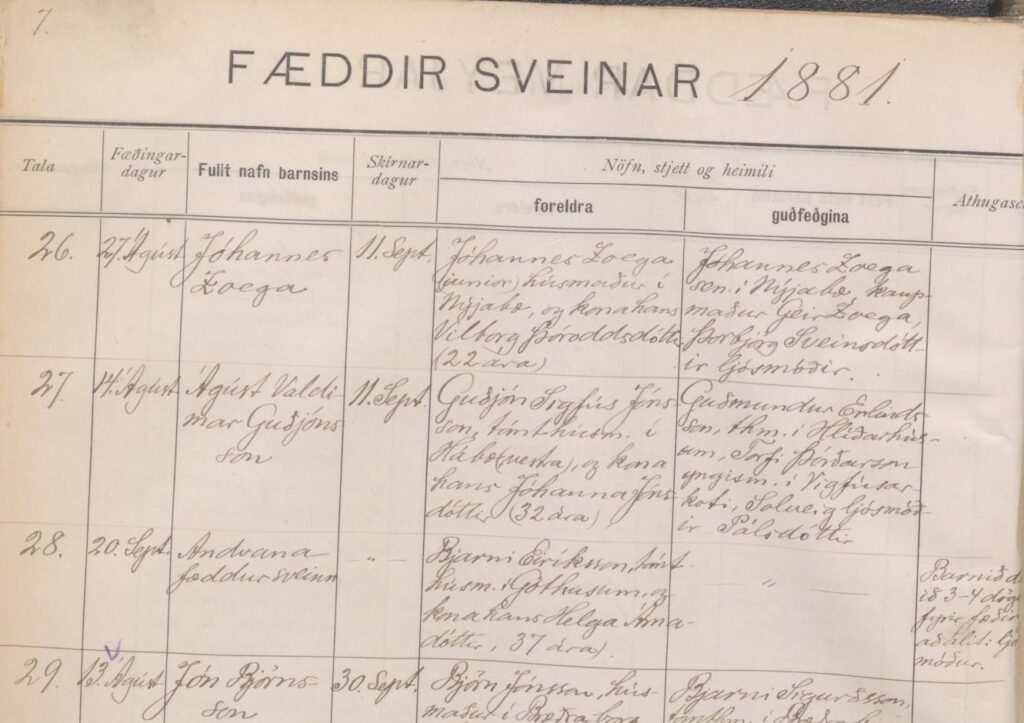 7.
FÆDDIR SVEINAR 1881.
Tala
Fæðingar-
dagur
Fullt nafn barnsins
Skírnar-
dagur
Nöfn, stjett og heimili
foreldra
guðfeðgina
Athugase
26.
27. Ágúst
Jóhannes
Zoega
11. Sept.
Jóhannes Zoega
(junior) húsmaður í
Nýjabæ, og kona hans
Vilborg Þóroddsdóttir
(22 ára)
Jóhannes Zoega
sen. í Nýjabæ, kaup-
maður Geir Zoega,
Þorbjörg Sveinsdótt-
ir ljósmóðir.
27.
14. Ágúst
Ágúst Valdi-
mar Guðjóns
son
11. Sept.
Guðjón Sigfús Jóns
son, tómthúsm. í
Hábæ (vestra), og kona
hans Jóhanna Jóns
dóttir (32 ára)
Guðmundur Erlends
son, thm. í Hlíðarhús-
um, Torfi Þórðarson
yngism. í Vigfúsar
koti, Solveig ljósmóð
ir Pálsdóttir
28.
20. Sept.
Andvana
fæddur sveinn
"
Bjarni Eiríksson, tómt-
húsm. í Göthúsum, og
kona hans Helga Árna-
dóttir, 37 ára).
"
Barnið d
ið 3-4 dög
fyrir fæðin
að áliti ljó
móður.
29.
13. Ágúst
Jón Björns-
son
30. Sept.
Björn Jónsson, hús-
maður í Bræðraborg
Bjarni Sigurðsson,
tómthm. í